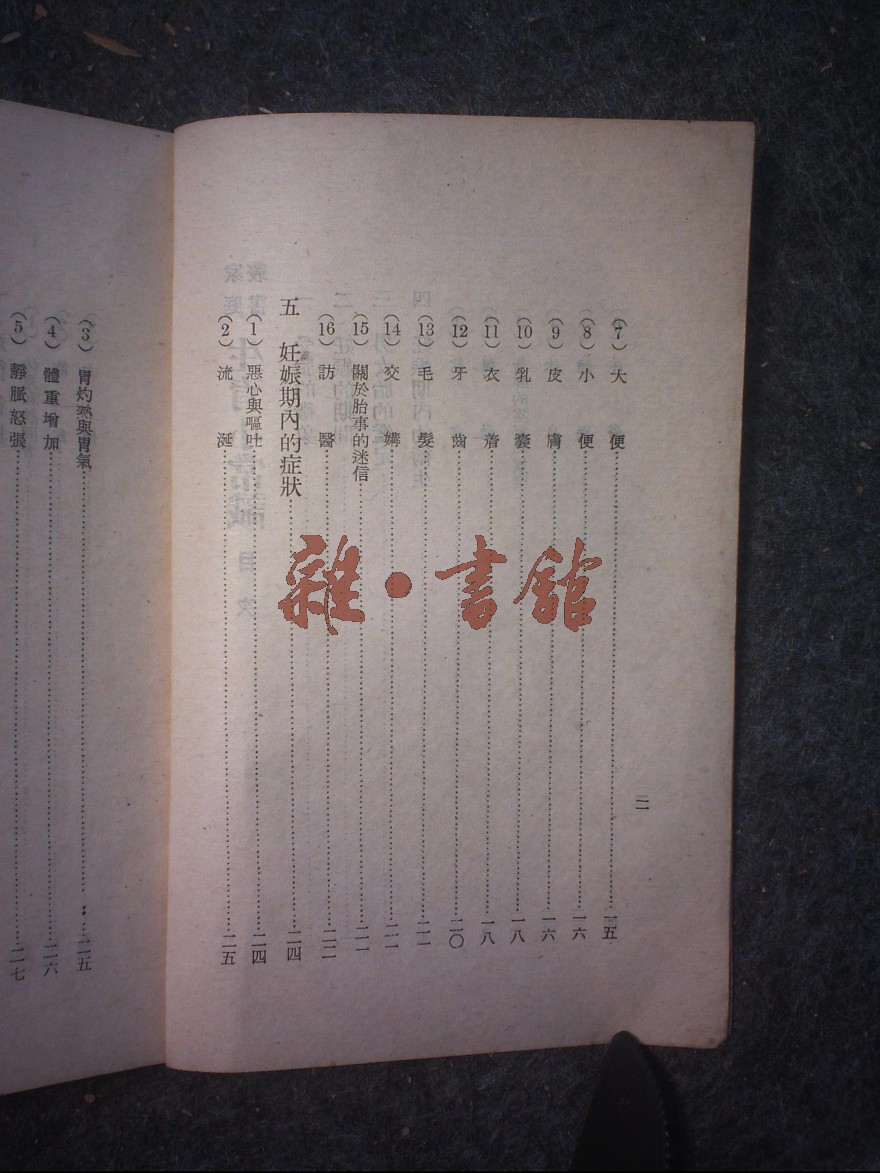 二
(7)大便……一五
(8)小便……一六
(9)皮膚……一六
(10)乳囊……一八
(11)衣着……一八
(12)牙齒……二〇
(13)毛髮……二一
(14)交媾……二一
(15)關於胎事的迷信……二一
(16)訪醫……二二
五 妊娠期內的症狀……二四
(1)惡心與嘔吐……二四
(2)流涎……二五
(3)胃灼熱與胃氣……二五
(4)體重增加……二六
(5)靜脈怒張……二七
雜·書館